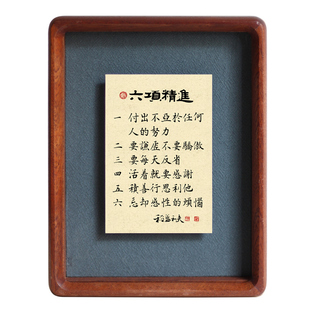 六項精進
一 付出不亞於任何
人的努力
二 要謙虛不要驕傲
三 要每天反省
四 活著就要感謝
五 積善行思利他
六 忘却感性的煩惱
稻盛和夫